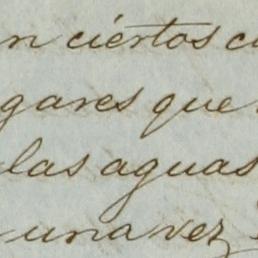 n ciertos c
gares que
las aguas
una vez